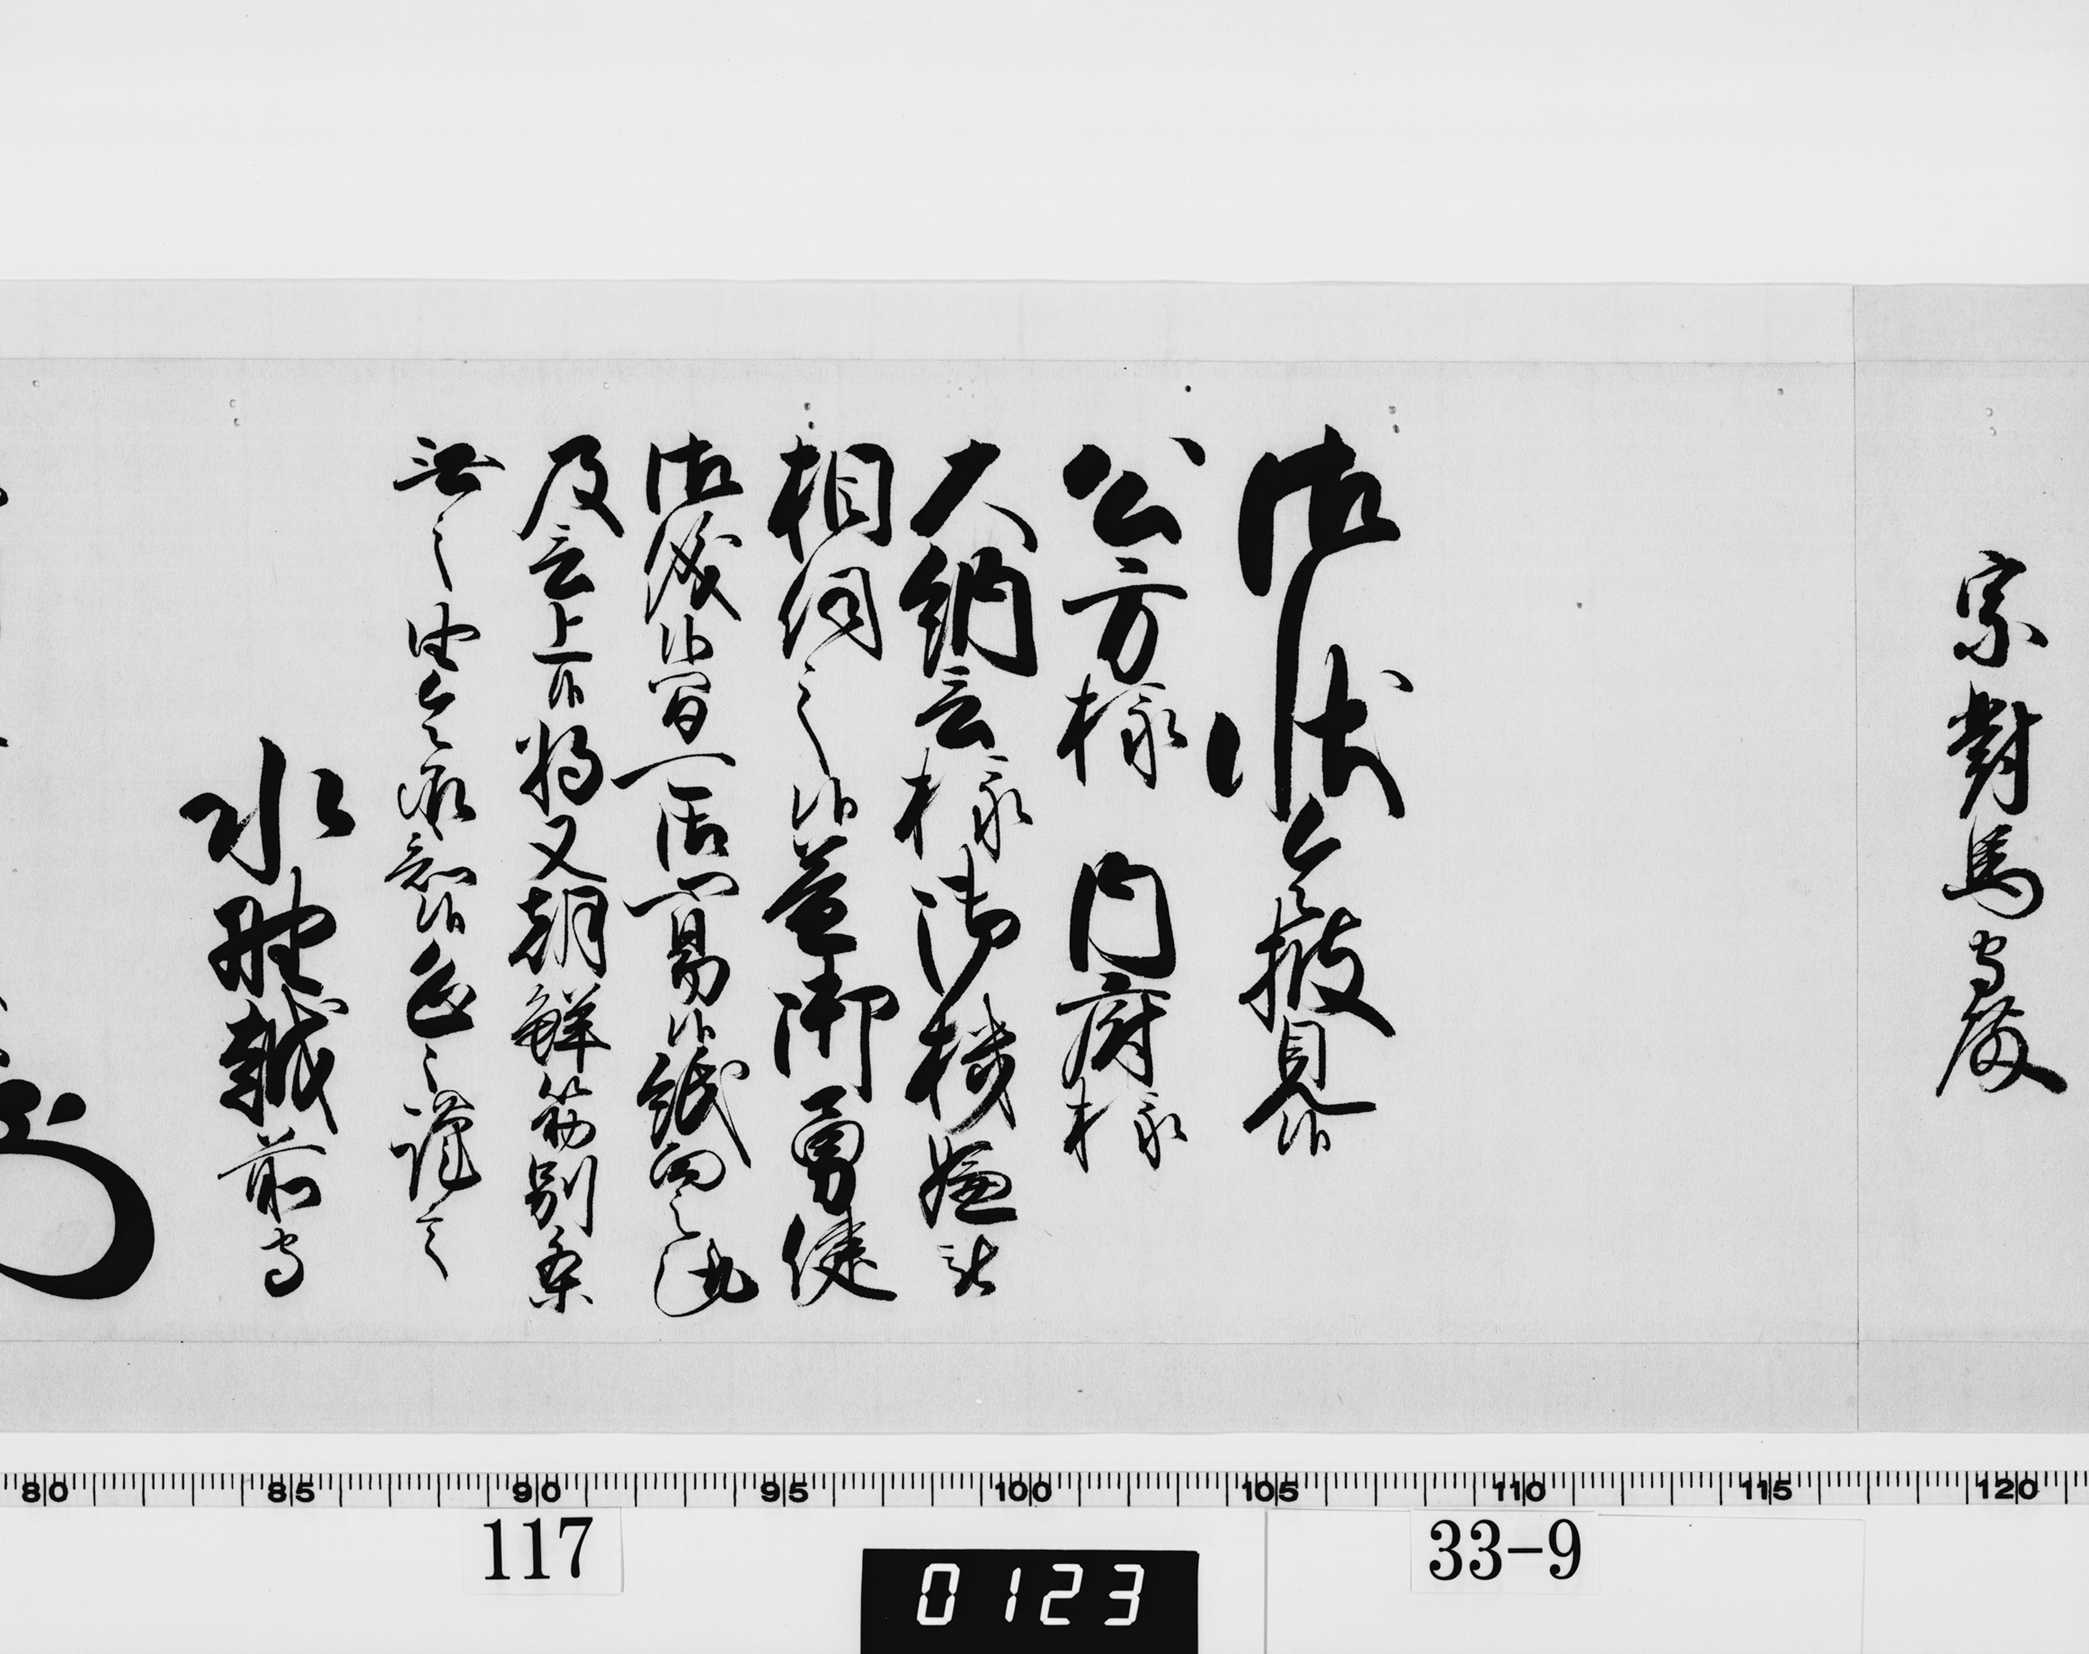 宗對馬守殿
御状令披見候
公方様　内府様
大納言様御機嫌被
相伺之候益御勇健
御儀候間可御心易候紙面之趣
及言上候将又朝鮮筋別条
無之由令承知候恐々謹言
水野越前守
80 85 90 95 100 105 110 115 120
117
33-9
0123